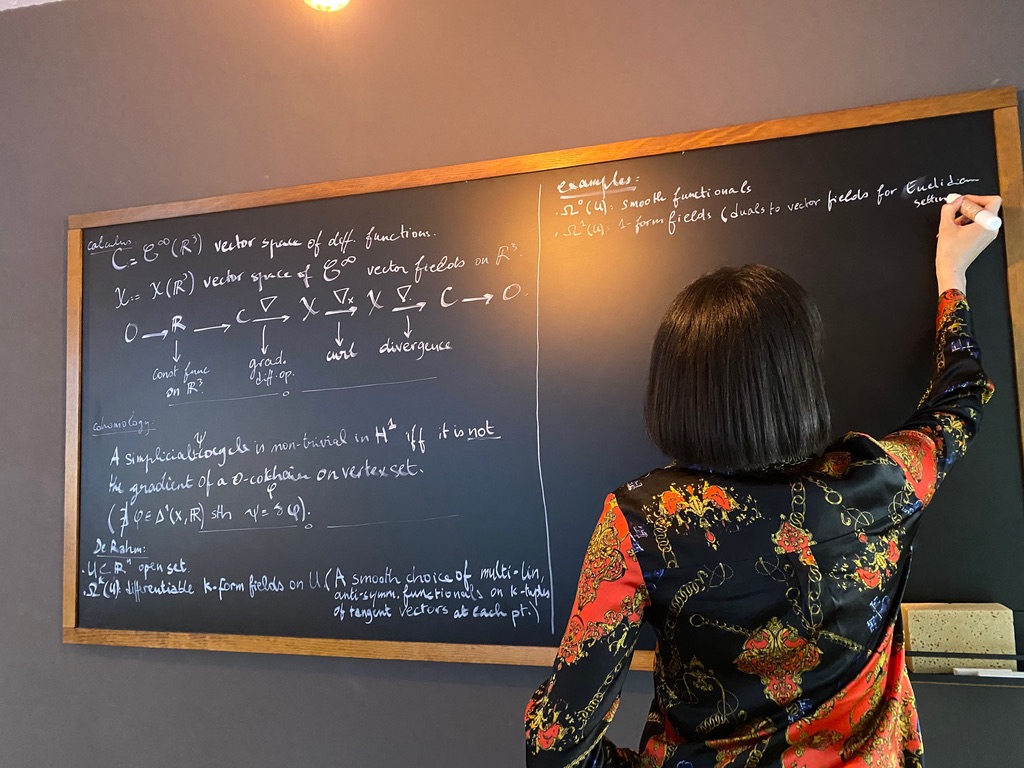 calculus.
C := C^∞(R³) vector space of diff. functions.
X := X(R³) vector space of C^∞ vector fields on R³.
0 → R → C ∇→ X ∇×→ X ∇·→ C → 0.
↓ ↓ ↓ ↓
const func on R³
grad. diff. op.
curl
divergence
cohomology.
A simplicial cocycle ψ is non-trivial in H¹ iff it is not
the gradient of a 0-cochain φ on vertex set.
(∄ φ ∈ Δ¹(X, R) sth ψ = δφ).
De Rahm:
· U ⊂ Rⁿ open set.
· Ωᵏ(U): differentiable k-form fields on U. (A smooth choice of multi-lin,
anti-symm. functionals on k-tuples
of tangent vectors at each pt.)
examples:
· Ω⁰(U): smooth functionals
· Ω¹(U): 1-form fields (duals to vector fields for Euclidian
setting